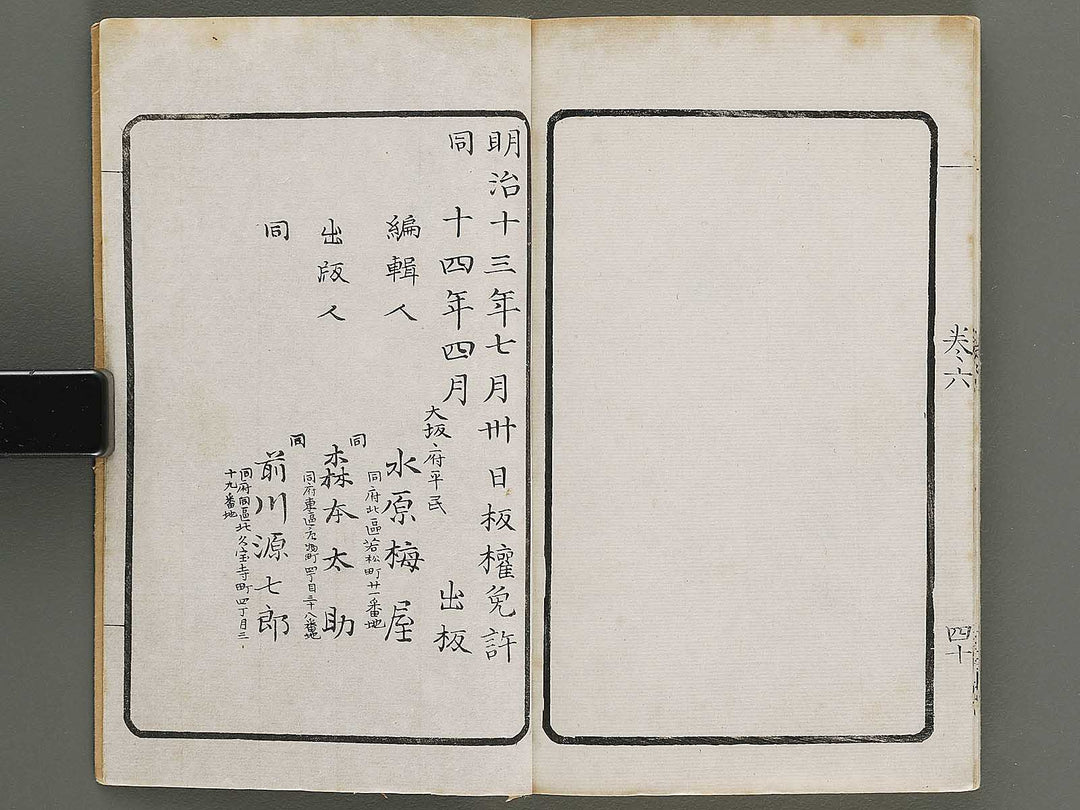 卷六
四十
明治十三年七月卅日板權免許
同 十四年四月 出板
大坂府平民
編輯人 水原梅屋
同府北區若松町廿一番地
同
出版人 森本太助
同府東區
町四丁目三十八番地
同
同 前川源七郎
同府同區北久宝寺町四丁目三
十九番地